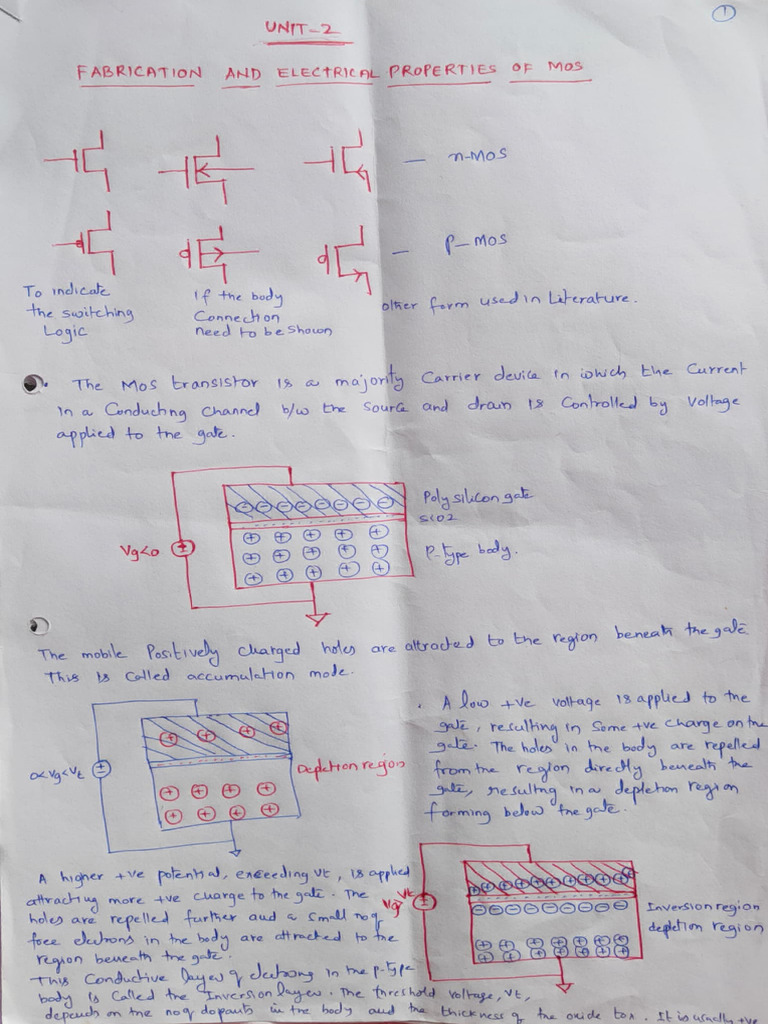 1
UNIT-2
FABRICATION AND ELECTRICAL PROPERTIES OF MOS
— n-MOS
— P-MOS
To indicate
the switching
Logic
If the body
Connection
need to be shown
other form used in Literature.
• The MOS transistor is a majority Carrier device in which the Current
in a Conducting channel b/w the Source and drain is Controlled by Voltage
applied to the gate.
Polysilicon gate
SiO2
Vg<0
P-type body.
The mobile Positively charged holes are attracted to the region beneath the gate
This is called accumulation mode.
0<Vg<Vt
Depletion region
• A low +ve voltage is applied to the
gate, resulting in Some +ve charge on the
gate. The holes in the body are repelled
from the region directly beneath the
gate, resulting in a depletion region
forming below the gate.
A higher +ve potential, exceeding Vt, is applied
attracting more +ve charge to the gate. The
holes are repelled further and a small no of
free electrons in the body are attracted to the
region beneath the gate.
This Conductive layer of electrons in the p-type
body is Called the Inversion layer. The threshold voltage, Vt,
depends on the no of dopants in the body and the thickness of the oxide tox. It is usually +ve
Vg Vt
Inversion region
depletion region